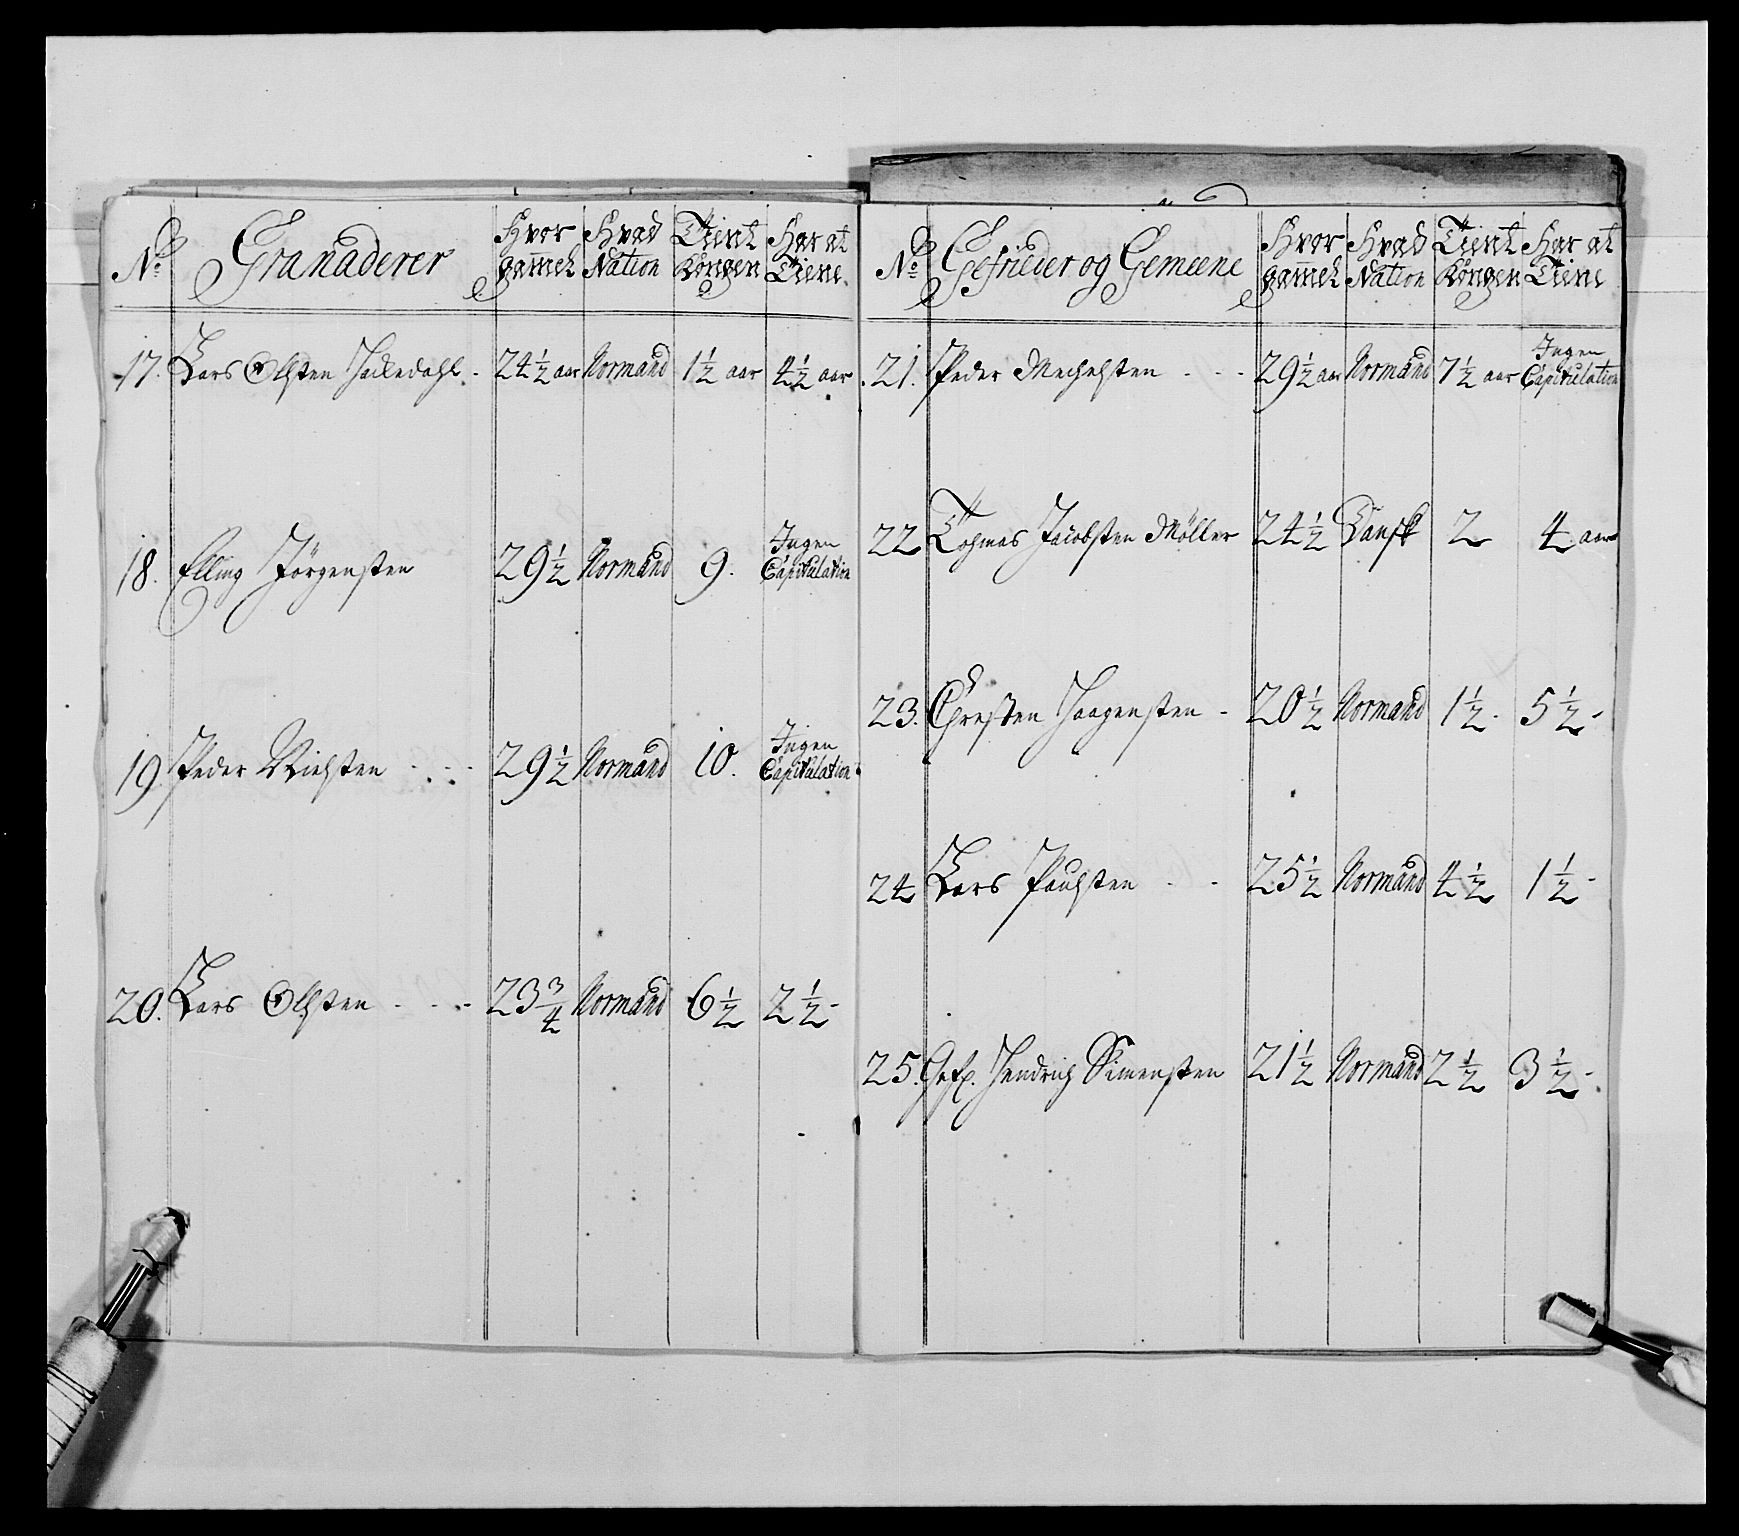 No Granaderer Hvor gamel Hvad Nation Tient Kongen Har at Tiene
17. Lars Olsten Halledahl. 24 1/2 aar Normand 1 1/2 aar 4 1/2 aar
18. Elling Jörgensten 29 1/2 Normand 9. Ingen Capitulation
19. Peder Nielsten - - - 29 1/2 Normand 10. Ingen Capitulation
20. Lars Olsten - - - 23 3/4 Normand 6 1/2 2 1/2 -
No Gefrieder og Gemeene Hvor gamel Hvad Nation Tient Kongen Har at Tiene
21. Peder Mechelsten - - - 29 1/2 aar Normand 7 1/2 aar Ingen Capitulation
22 Tohmas Jacobsten Möller 24 1/2 Dansk 2 4 aar
23. Chresten Haagensten - 20 1/2 Normand 1 1/2 - 5 1/2 -
24 Lars Paulsten - - 25 1/2 Normand 4 1/2 1 1/2 -
25. Gefr. Hendrich Simensten 21 1/2 Normand 2 1/2 3 1/2 -